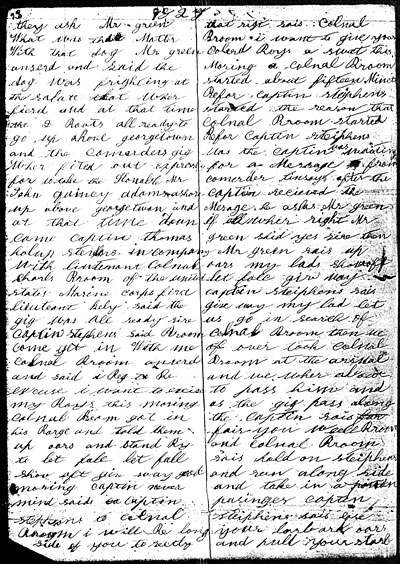 they ask Mr green
What was that Matter
With that dog Mr green
anserd and said the
dog Was frighting at
the Salute that Wher
fierd and at that time
the Boats all ready to
go up above georgetown
and the Comerders gig
Wher fited out expresly
for to take the Honable Mr
John quincy adam on shore
up above georgetown and
at that time down
came captin thomas
holup Stephens in company
With lieutenant Colnal
Broom of the united
States Marine corps first
lieuteant Kely said the
gig Was all ready sire
Captin Stephens said Broom
come get in With me
Colnal Broom anserd
and said i Beg to be
i want to
my Boys this moring
Colnal Broom got in
his Barge and told them
up oars and stand By
to let fale let fall
shove off give way good
moring captin never
mind said captin
stephens to colnal
Broom i will Be long
side of you to redy
that right said Colnal
Broom i want to give your
Colerd Boys a swet this
Moring colnal Broom
started about fifteen Minets
Befor captin stephens
started the reason that
Colnal Broom started
Befor Captin stephens
Was the Captin was waiting
for a Mesage from
comerder tinsey after the
Captin recieved the
Mesage he asks Mr green
if all wher right Mr
green said yes sire then
Mr green said up
oars my lads shove off
let fale giv way
captin steiphens said
give way my lad let
us go in search of
colnal Broom then we
of over took Colnal
Broom at the arsnal
and we wher about
to pass him and
as the gig pass along
the Captin said
fair you well Broom
and Colnal Broom
said hold on steiphens
and run along side
and take in a
pasinger capten
steiphens said give
your larbark oars
and pull your starb